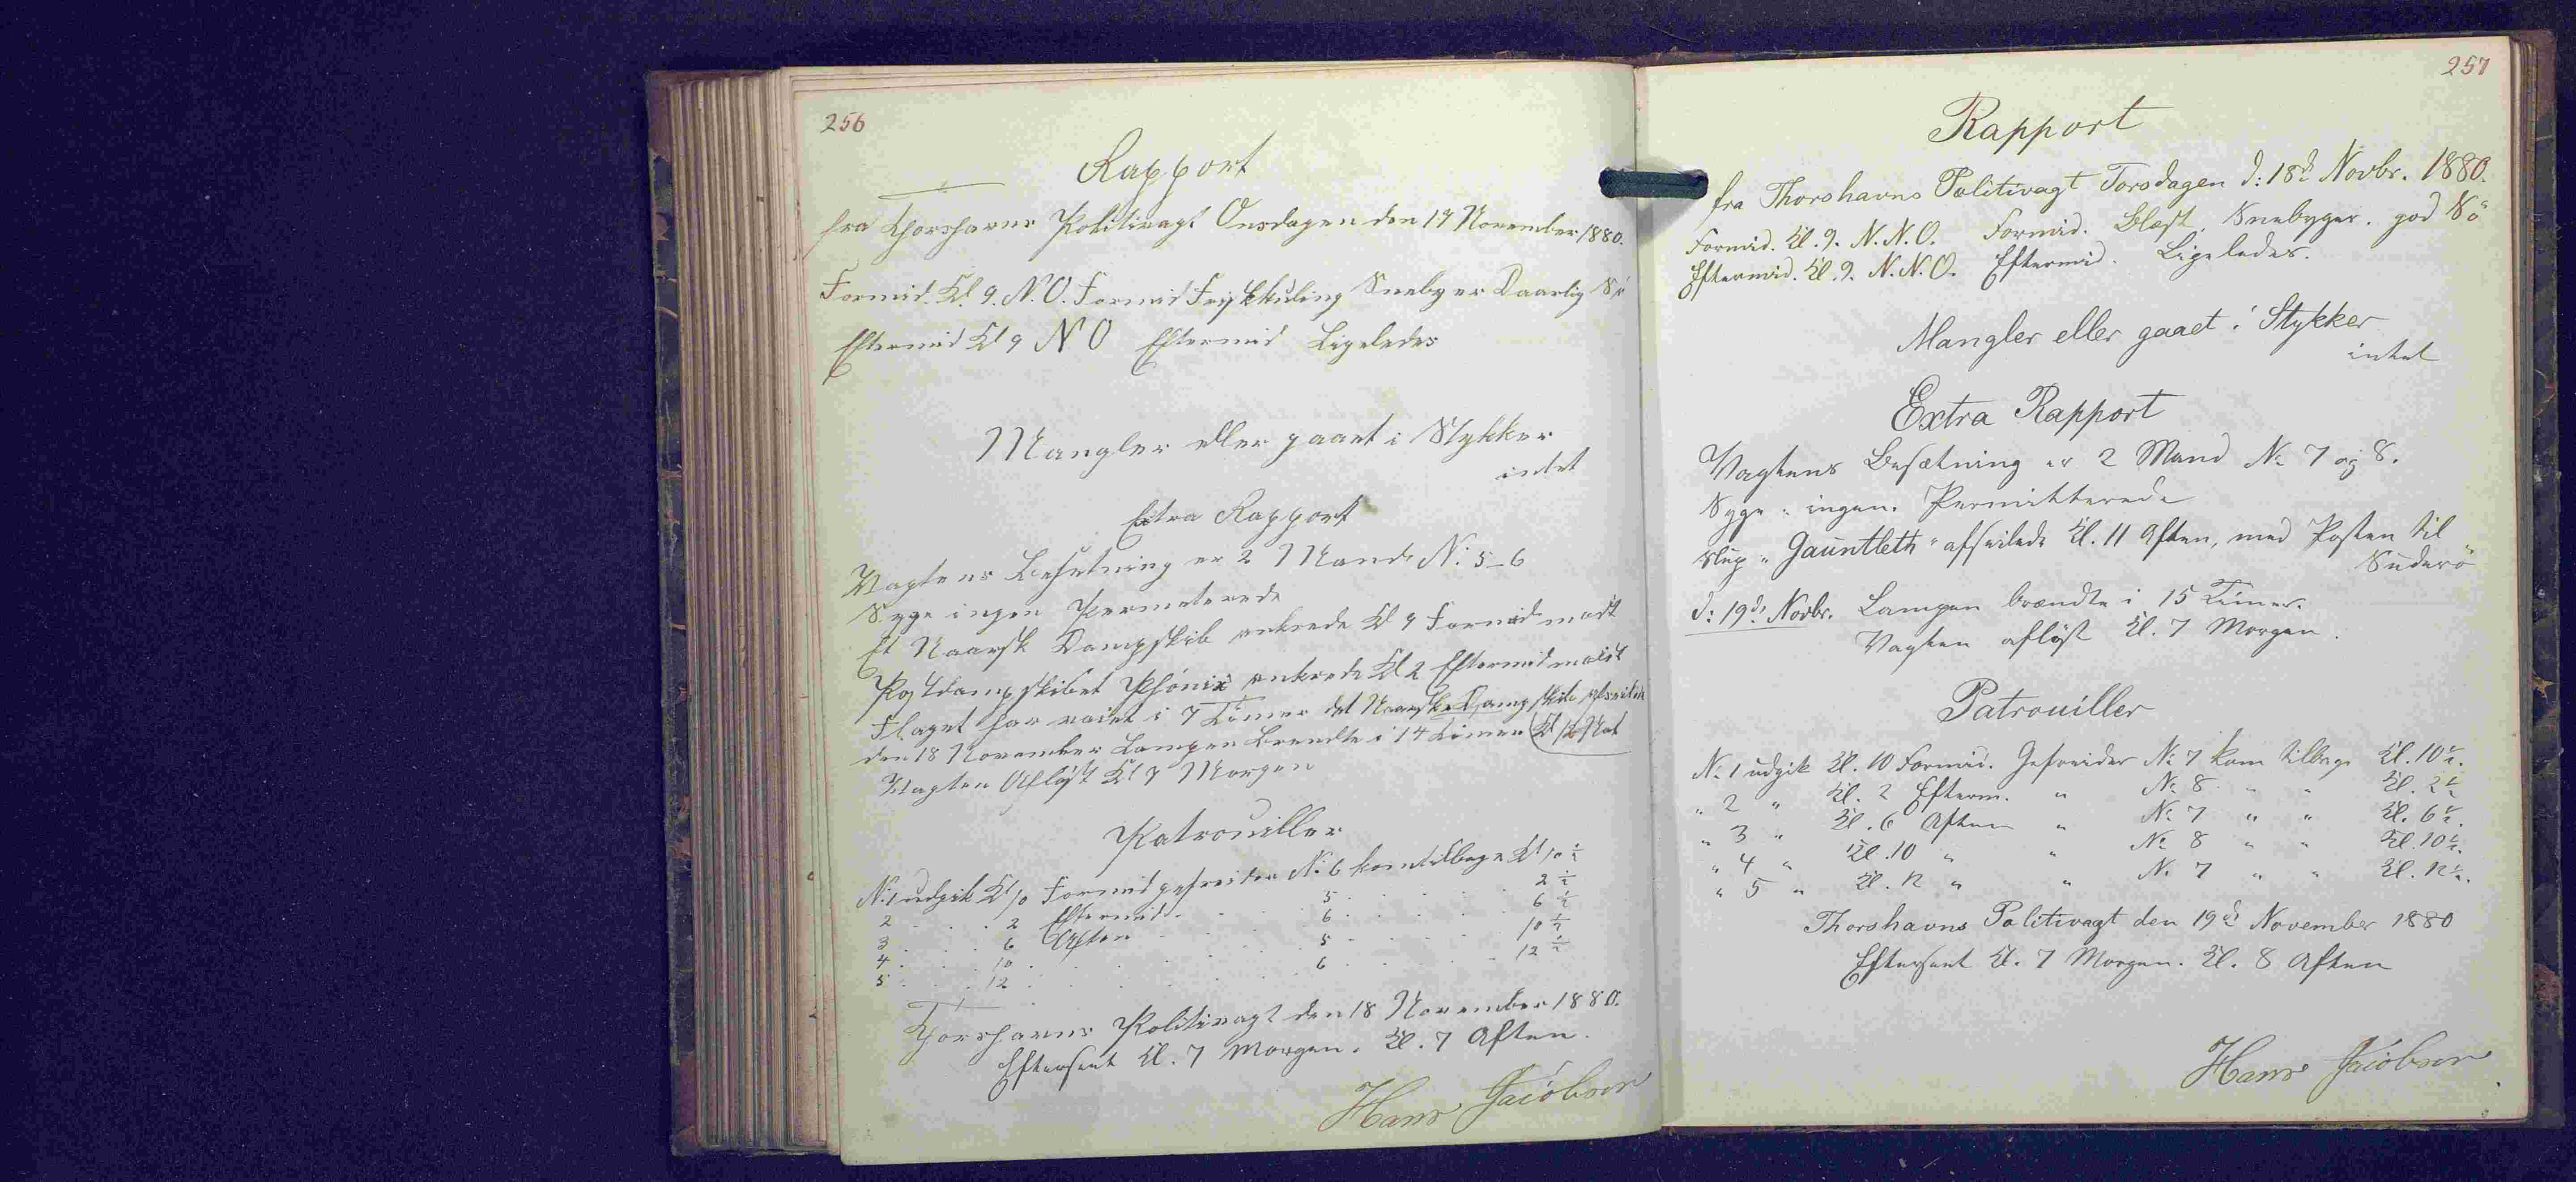 256
Rapport
fra Thorshavns Politivagt Onsdagen den 17 November 1880.
Formid. Kl 9. N.O. Formid Friskkuling Snebyer Daarlig Sö
Eftermid Kl 9 N O Eftermid Ligeledes
Mangler eller gaaet i Stykker
intet
Extra Rapport
Vagtens Besetning er 2 Mand No: 5_6
Syge ingen Permeterede
Et Naarsk Dampskib ankrede Kl 9 Formid
Postdampskibet Phönix ankrede Kl 2 Eftermid
Flaget har vaiet i 7 Timer det Naarske Dampskib afseilede
den 18 November Lampen Brendte i 14 Timer (Kl 12 Nat
Vagten Aflöst Kl 7 Morgen
Patrouiller
No: 1 udgik Kl 10 Formid gefreider No: 6 kom tilbage Kl 10 ½
2 . . . 2 Eftermid . . . 5 . . . 2 ½
3 . . . 6 Aften . . . 6 . . . 6 ½
4 . . . 10 . . . 5 . . . 10 ½
5 . . . 12 . . . 6 . . . 12 ½
Thorshavns Politivagt den 18 November 1880.
Efterseet Kl. 7 Morgen. Kl. 7 Aften.
Hans Jacobsen
257
Rapport
fra Thorshavns Politivagt Torsdagen d: 18d Novbr. 1880.
Formid. Kl. 9. N.N.O. Formid. Blæst, Snebyger. god Sö
Eftermid. Kl. 9. N.N.O. Eftermid. Ligeledes.
Mangler eller gaaet i Stykker
intet
Extra Rapport
Vagtens Besætning er 2 Mand No 7 og 8.
Syge: ingen. Permitterede
Slup "Gauntleth" afseilede Kl. 11 Aften, med Posten til
Suderö
d: 19d: Novbr. Lampen brændte i 15 Timer.
Vagten aflöst Kl. 7 Morgen.
Patrouiller
No 1 udgik Kl. 10 Formid. Gefreider No 7 kom tilbage Kl. 10½.
" 2 " Kl. 2 Efterm. " No 8 " " Kl. 2½
" 3 " Kl. 6 Aften " No 7 " " Kl. 6½.
" 4 " Kl. 10 " " No 8 " " Kl. 10½.
" 5 " Kl. 12 " " No 7 " " Kl. 12½.
Thorshavns Politivagt den 19d November 1880
Efterseet Kl. 7 Morgen. Kl. 8 Aften
Hans Jacobsen